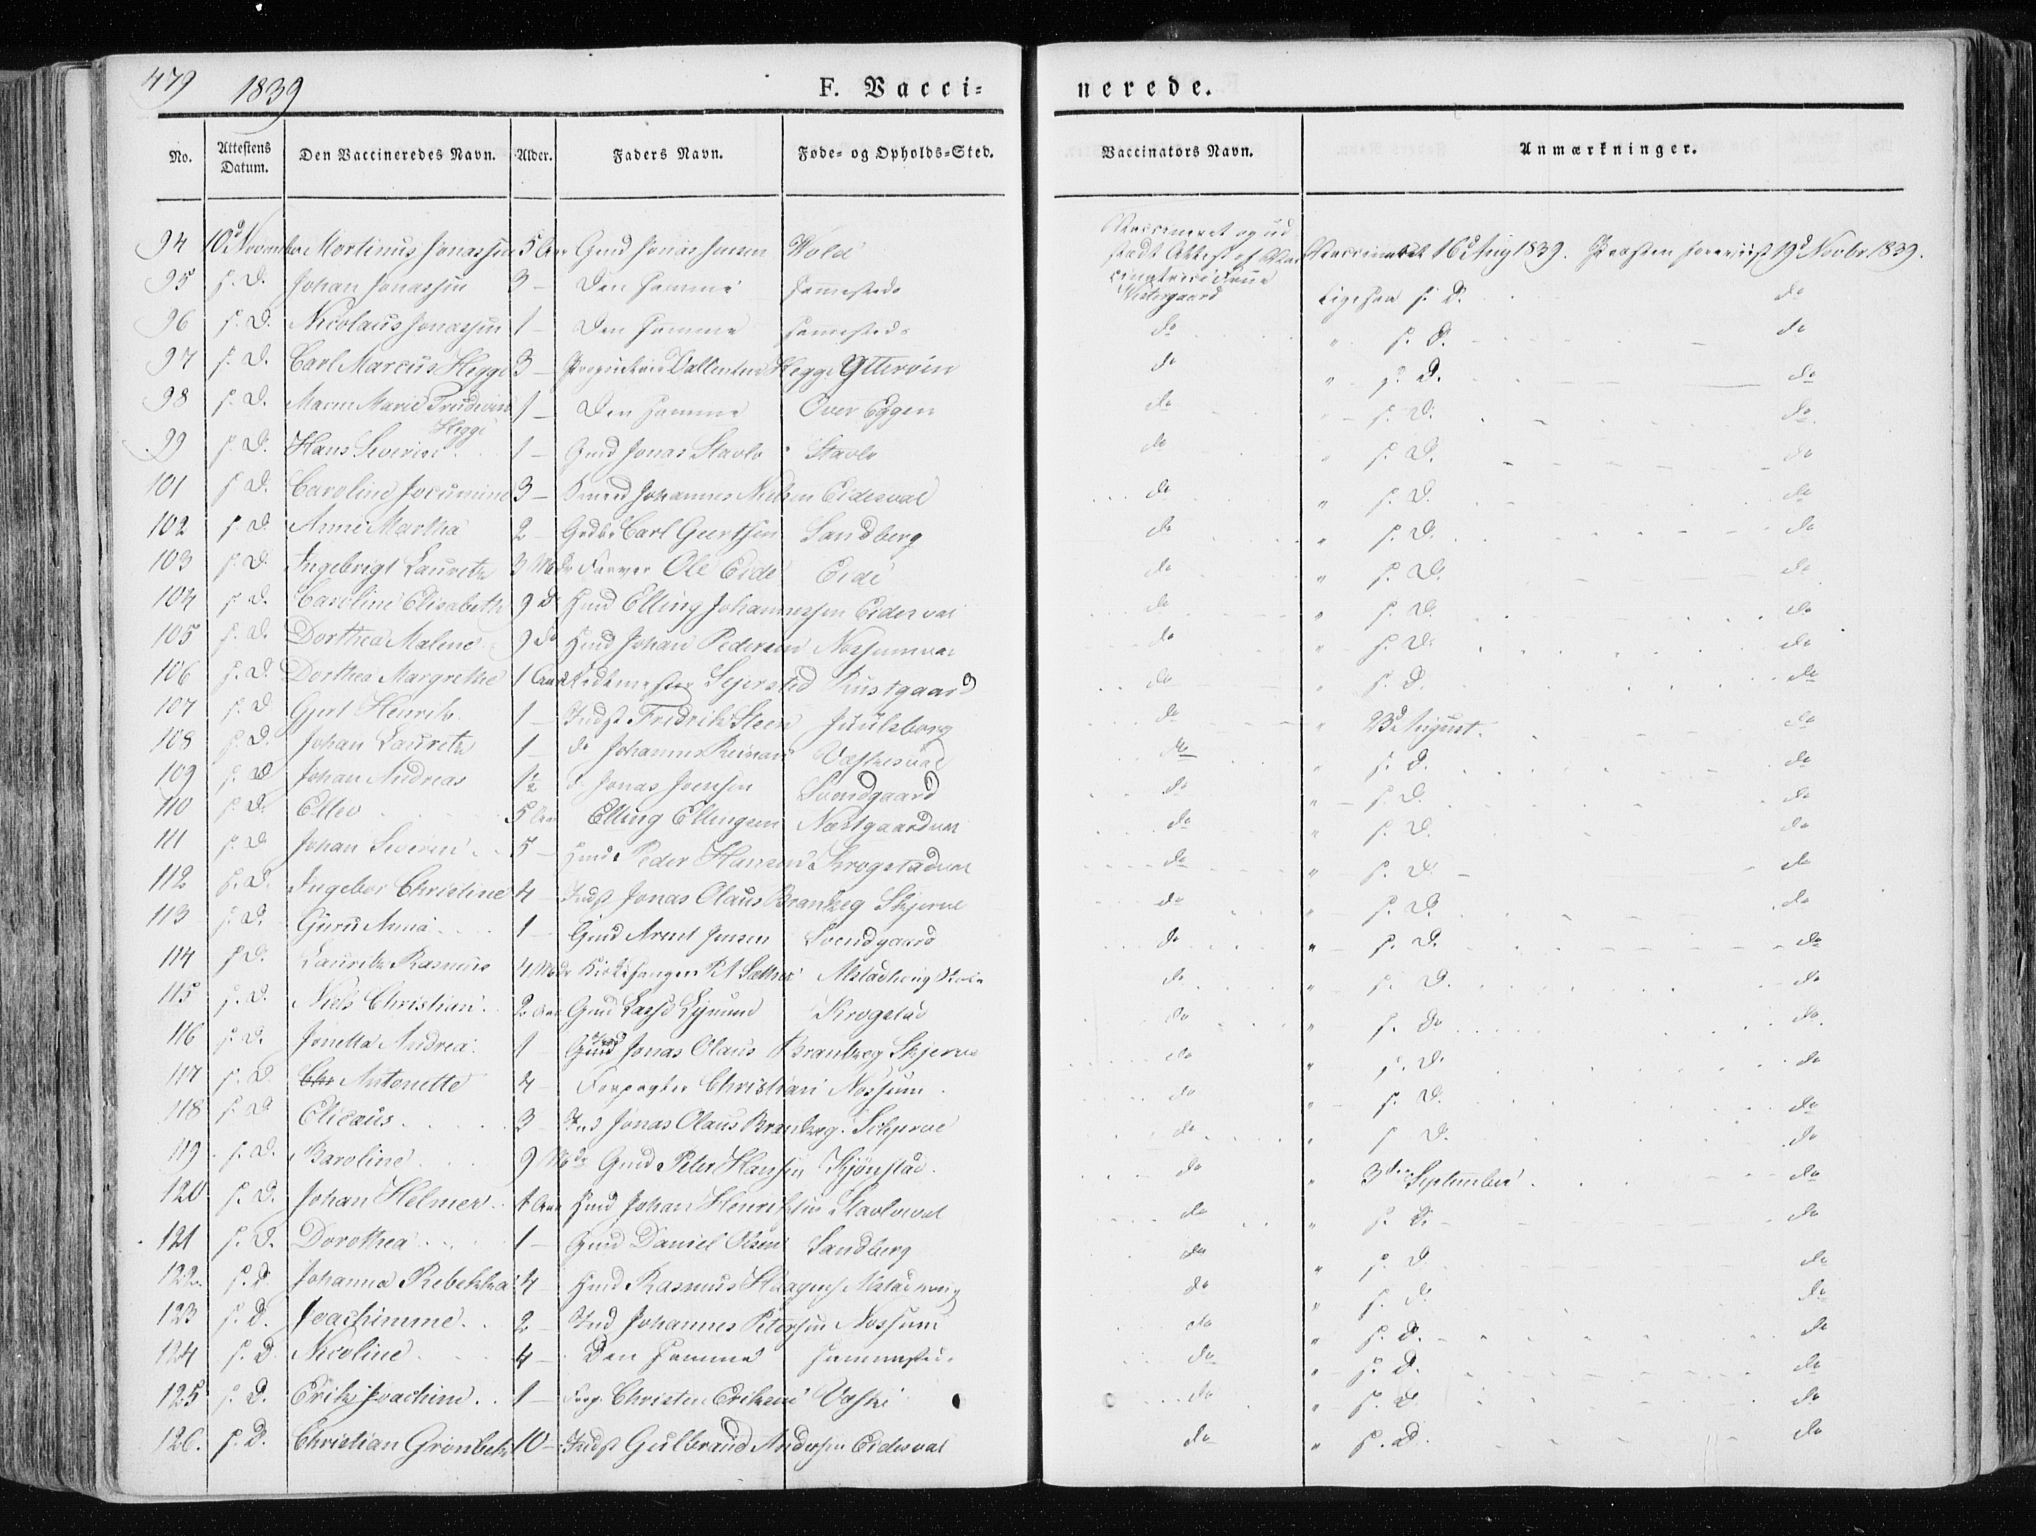 479 1839 F. Vacci- nerede.
No. Attestens Datum. Den Vaccineredes Navn. Alder. Faders Navn. Føde- og Opholds-Sted. Vaccinators Navn. Anmærkninger.
94 10d Novembr Martinus Jonassen 5 Aar Gmd Jonas Jensen Wold Vaccineret og ud stædt Attest af Vestergaard Vaccineret 16d Aug 1839. Præsten foreviist 19d Novbr 1839.
95 s. D. Johan Jonassen 3 - Den Samme sammesteds Ligesaa s. D. do
96 s. D. Nicolaus Jonassen 1 - Den Samme sammesteds do " s. D. do
97 s. D. Carl Marcus Hegge 3 - Proprietair Vallentin Hegge Ytterøen do " s. D. do
98 s. D. Maren Marie Hegge 1 - Den Samme Over Eggen do " s. D. do
99 s. D. Hans Severin 1 - Gmd Jonas Stavlo Stavlo do " s. D. do
101 s. D. Caroline 3 - Johannes Nielsen Eidesval do " s. D. do
102 s. D. Anne Martha 2 - Carl Geertsen Sandberg do " s. D. do
103 s. D. Ingebrigt Lauritz 3 Mdr Farver Ole Eide Eide do " s. D. do
104 s. D. Caroline Elisabeth 9 do Hmd Elling Johannessen Eidesval do " s. D. do
105 s. D. Dorthea Malene 9 do Hmd Johan Pedersen Nossumval do " s. D. do
106 s. D. Dorthea Margrethe 1 Aar Sejersted Rustgaard do " s. D. do
107 s. D. Gjert Henrik 1 - Indst Fridrik Steen Juulsborg do " 23d August. do
108 s. D. Johan Lauritz 1 - do Johannes do " s. D. do
109 s. D. Johan Andreas 1½ do Jonas Jensen Svendgaard do " s. D. do
110 s. D. Ellev 5 Aar Elling Ellingsen Nestgaardval do " s. D. do
111 s. D. Johan Severin 5 - Hmd Peder Hansen Krogstadval do " s. D. do
112 s. D. Ingebor Christine 4 - Indst Jonas Olaus Brantzeg Skjerve do " s. D. do
113 s. D. Guru Anna 1 - Gmd Arent Jensen Svendgaard do " s. D. do
114 s. D. Lauritz Rasmus 4 Mdr Kirkesanger do " s. D. do
115 s. D. Niels Christian 2 Aar Gmd Krogstad do " s. D. do
116 s. D. Jonetta Andrea 1 - Jonas Olaus Brantzeg Skjerve do " s. D. do
117 s. D. Antonette 4 - Forpagter Christian Nossum do " s. D. do
118 s. D. Elicaus 3 - Jonas Olaus Brantzeg Schjerve do " s. D. do
119 s. D. Baroline 9 Mdr Gmd Peter Hansen Kjønstad do " 3die September do
120 s. D. Johan Helmer 1 Aar Hmd Johan Henriksen Stavloval do " s. D. do
121 s. D. Dorothea 1 - Gmd Daniel Olsen Sandberg do " s. D. do
122 s. D. Johanna Rebekka 4 - Hmd Rasmus do " s. D. do
123 s. D. Joachimme 2 - Ind Johannes Petersen Nossum do " s. D. do
124 s. D. Nicoline 4 - Den Samme sammested do " s. D. do
125 s. D. Erik Joachim 1 - Forp. Christen Eriksen do " s. D. do
126. s. D. Christian Grønbek 10 - Indst Gulbrand Andersen Eidesval do " s. D. do